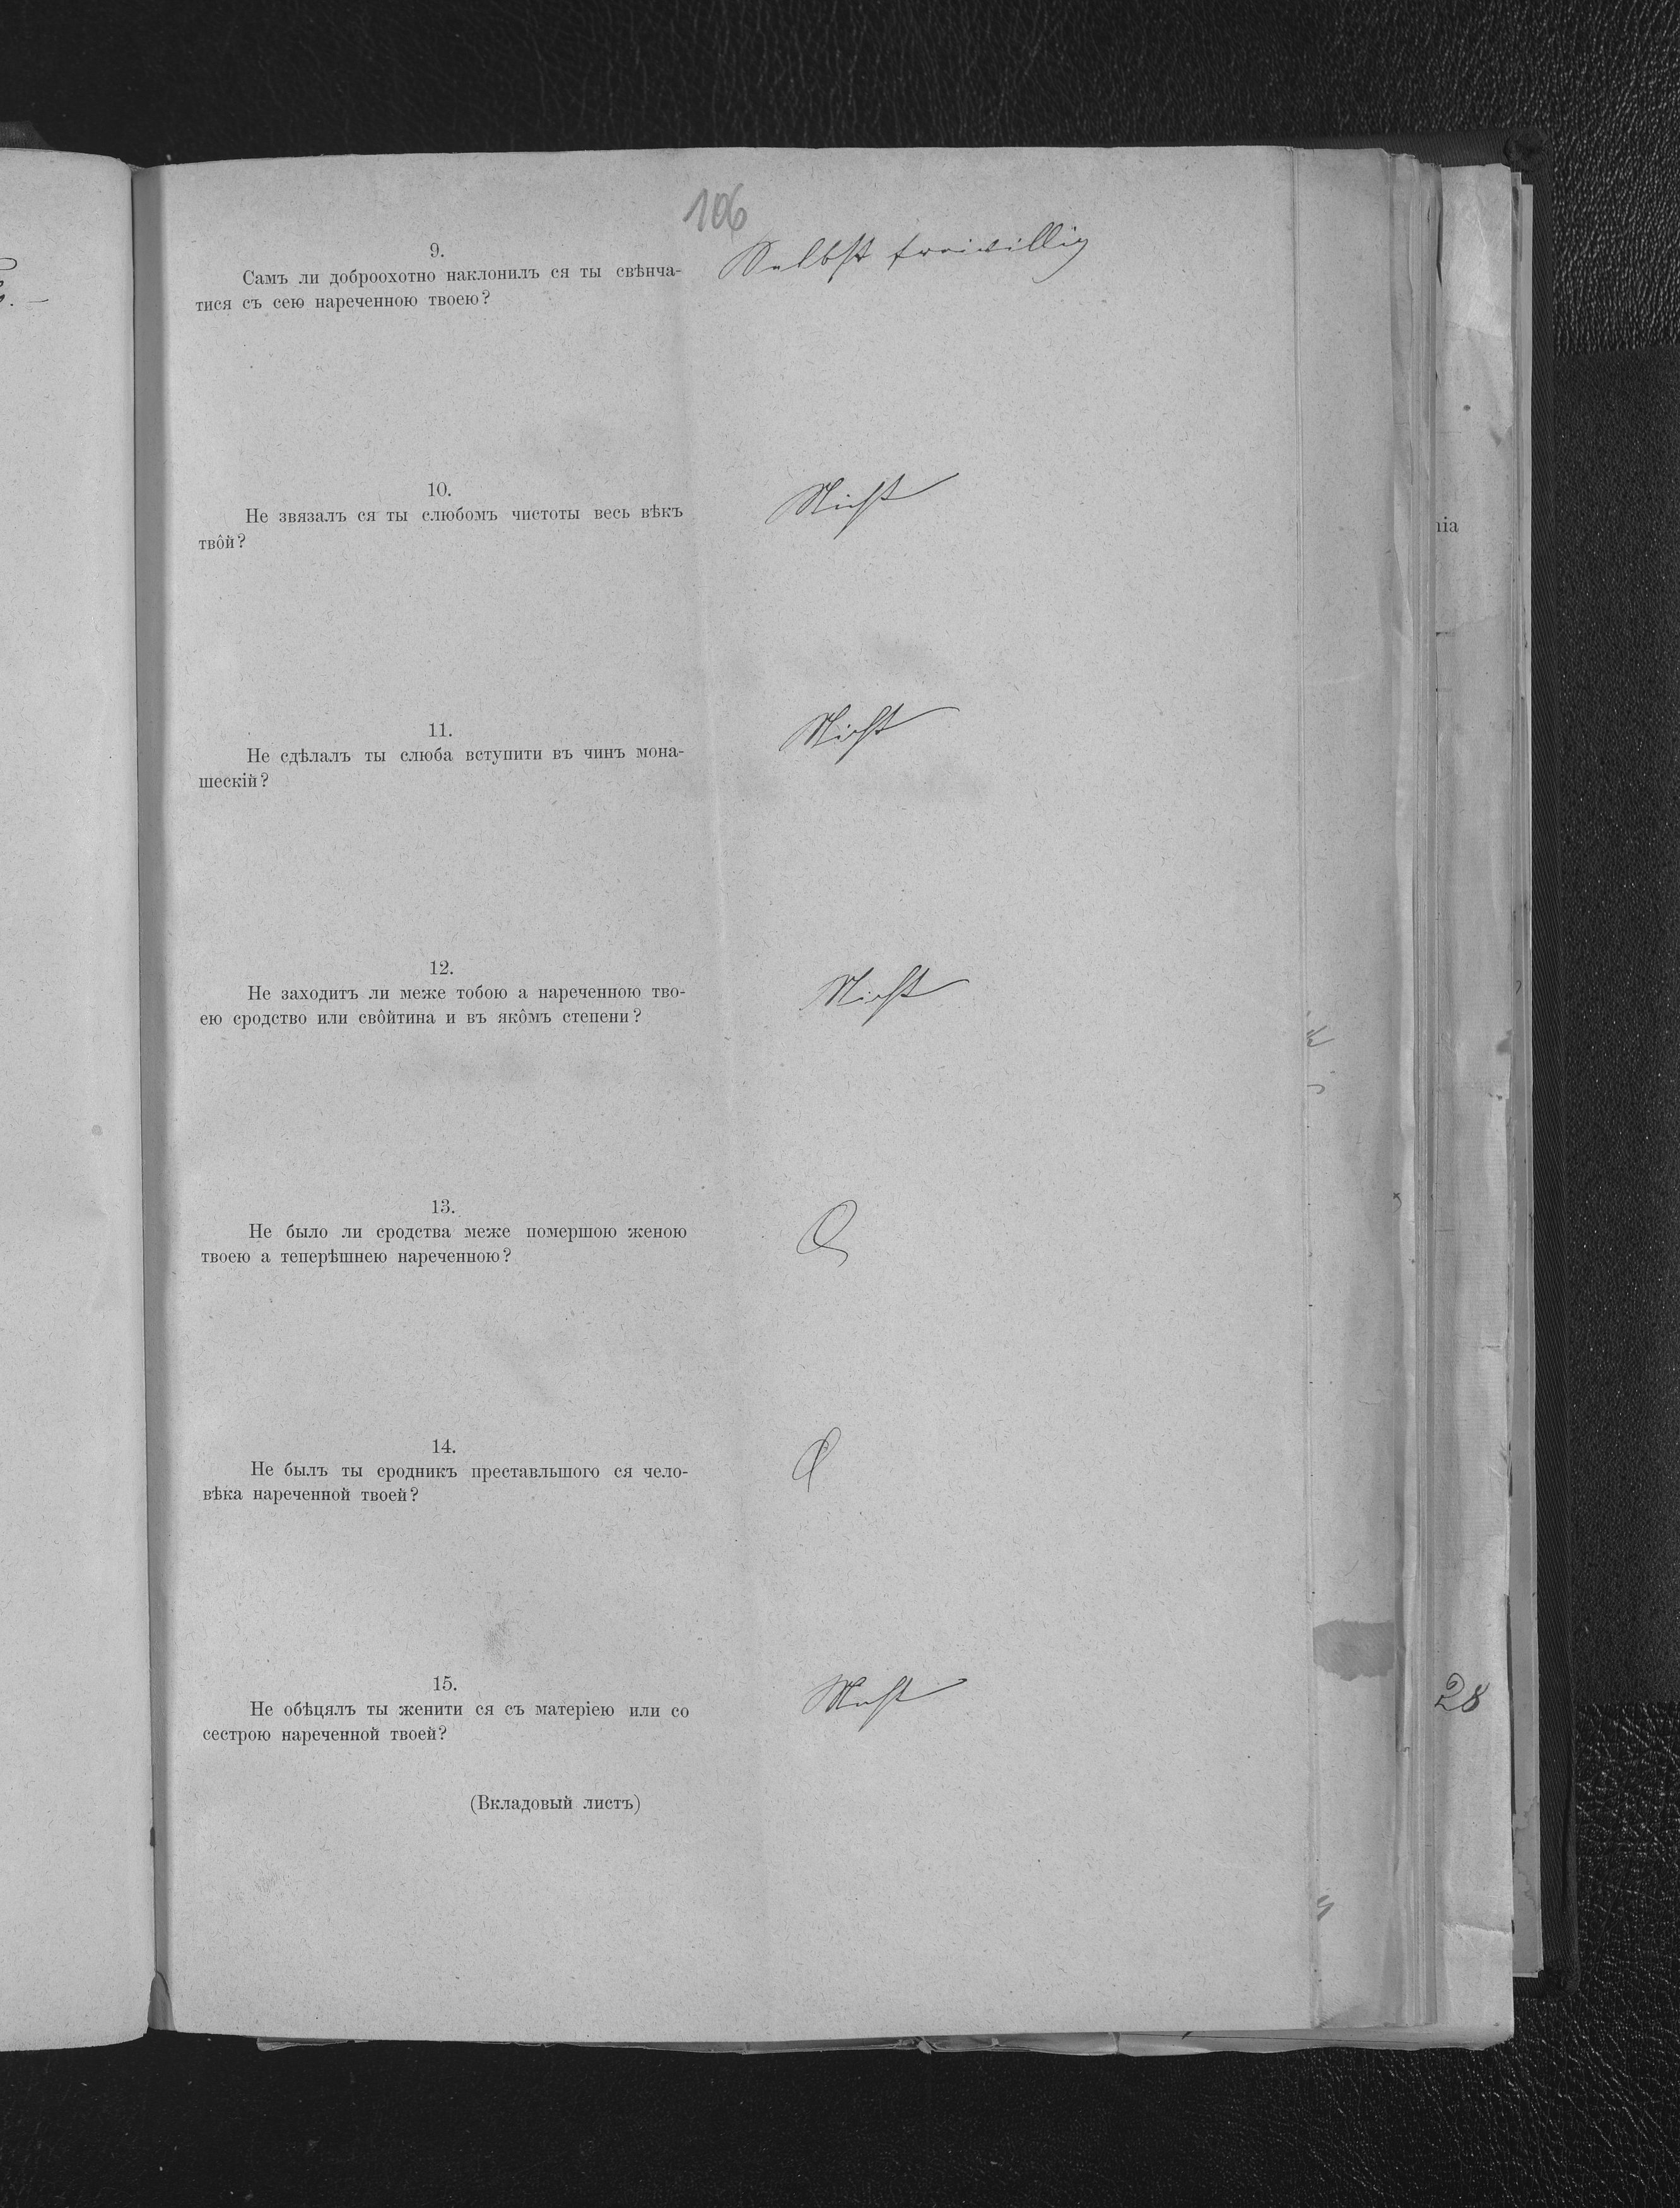 106
9.
Самъ ли доброохотно наклонилъ ся ты свѣнча-
тися съ сею нареченною твоею?
Selbst freiwillig
10.
Не звязалъ ся ты слюбомъ чистоты весь вѣкъ
твôй?
Nicht
11.
Не сдѣлалъ ты слюба вступити въ чинъ мона-
шескій?
Nicht
12.
Не заходитъ ли меже тобою а нареченною тво-
ею сродство или свôйтина и въ якôмъ степени?
Nicht
13.
Не было ли сродства меже помершою женою
твоею а теперѣшнею нареченною?
14.
Не былъ ты сродникъ преставльшого ся чело-
вѣка нареченной твоей?
15.
Не обѣцялъ ты женити ся съ матеріею или со
сестрою нареченной твоей?
Nicht
(Вкладовый листъ)
nia
28